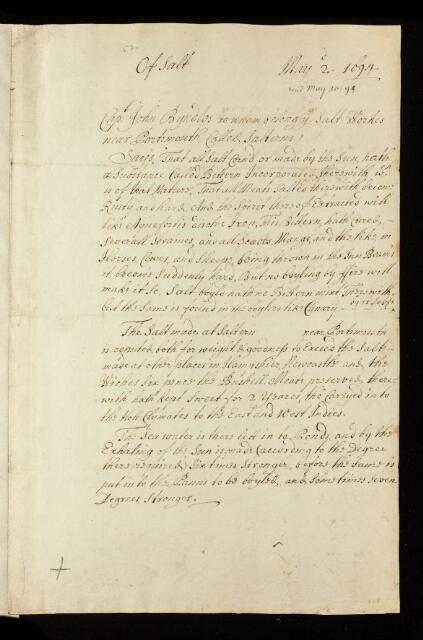 Of Salt May ye 2. 1694
read May 30: 94
Capt. John Byndlos to whom belong ye Salt Workes
near Portsmouth, Called, Salterns.
Sayes, That all Salt Cornd or made by the Sun, hath
a Substance Called Bittern Incorporated therewith wch
is of that Nature, That all Meats Salted therewith become
Rusty and hard, And the Spirit thereof Extracted will
like Aquafortis Iron, this Bittern hath Cured,
Severall Straines, and all Scabbs, Mange, and the like, in
Horses, Cowes, and Sheepe, being thrown in the Sun Beams
it become Suddenly hard, But no boyling by Fire will
make it so, Salt boyld hath no Bittern mixt Therewith,
but the Same is found in the
The Salt made at Saltern near Portsmouth
is reputed both for weight & goodness to Exceed the Salt
made at other places in Hampshire Newcastle and the
Six pence the Bushell, Meats preserved, there-
with hath kept Sweet for 2 Yeares, tho Carryed into
the Hott Clymates to the East and West Indies.
The Sea water is there lett in to Ponds, and by the
Exhaling of the Sun is made (according to the Degree
there required) Six times Stronger, before the Same is
put in to the Panns to be boyled, and Some times Seven
Degrees Stronger.